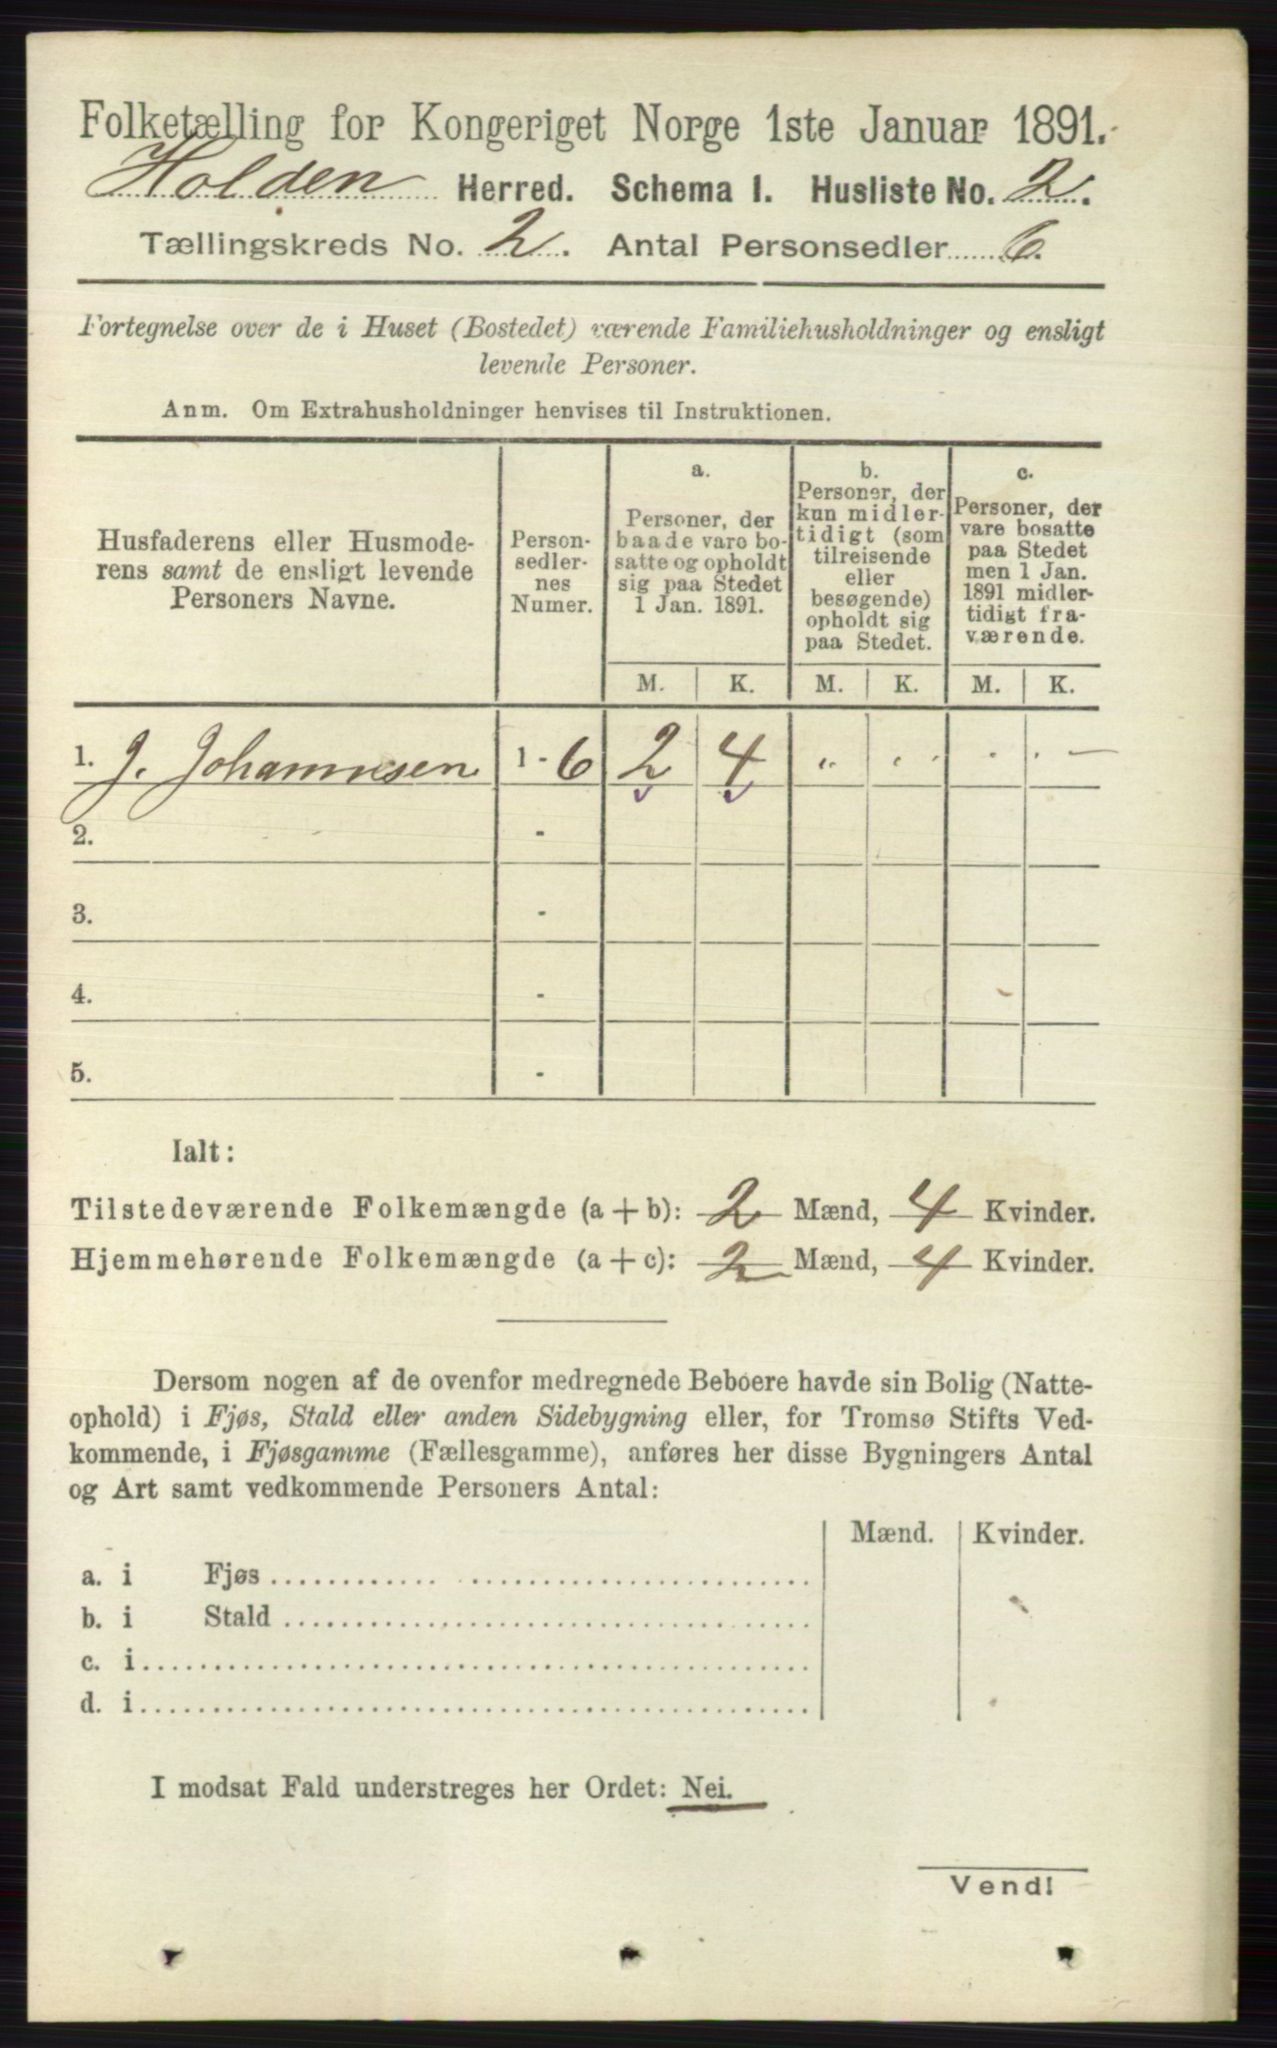 Folketælling for Kongeriget Norge 1ste Januar 1891.
Holden Herred. Schema I. Husliste No. 2.
Tællingskreds No. 2. Antal Personsedler 6.
Fortegnelse over de i Huset (Bostedet) værende Familiehusholdninger og ensligt
levende Personer.
Anm. Om Extrahusholdninger henvises til Instruktionen.
Husfaderens eller Husmode-
rens samt de ensligt levende
Personers Navne.
Person-
sedler-
nes
Numer.
a.
Personer, der
baade vare bo-
satte og opholdt
sig paa Stedet
1 Jan. 1891.
b.
Personer, der
kun midler-
tidigt (som
tilreisende
eller
besøgende)
opholdt sig
paa Stedet.
c.
Personer, der
vare bosatte
paa Stedet
men 1 Jan.
1891 midler-
tidigt fra-
værende.
M. K. M. K. M. K.
1. J. Johannesen 1 - 6 2 4 " " . . . -
2. -
3. -
4. -
5. -
Ialt:
Tilstedeværende Folkemængde (a + b): 2 Mænd, 4 Kvinder.
Hjemmehørende Folkemængde (a + c): 2 Mænd, 4 Kvinder.
Dersom nogen af de ovenfor medregnede Beboere havde sin Bolig (Natte-
ophold) i Fjøs, Stald eller anden Sidebygning eller, for Tromsø Stifts Ved-
kommende, i Fjøsgamme (Fællesgamme), anføres her disse Bygningers Antal
og Art samt vedkommende Personers Antal:
Mænd. Kvinder.
a. i Fjøs
b. i Stald
c. i
d. i
I modsat Fald understreges her Ordet: Nei.
Vend!